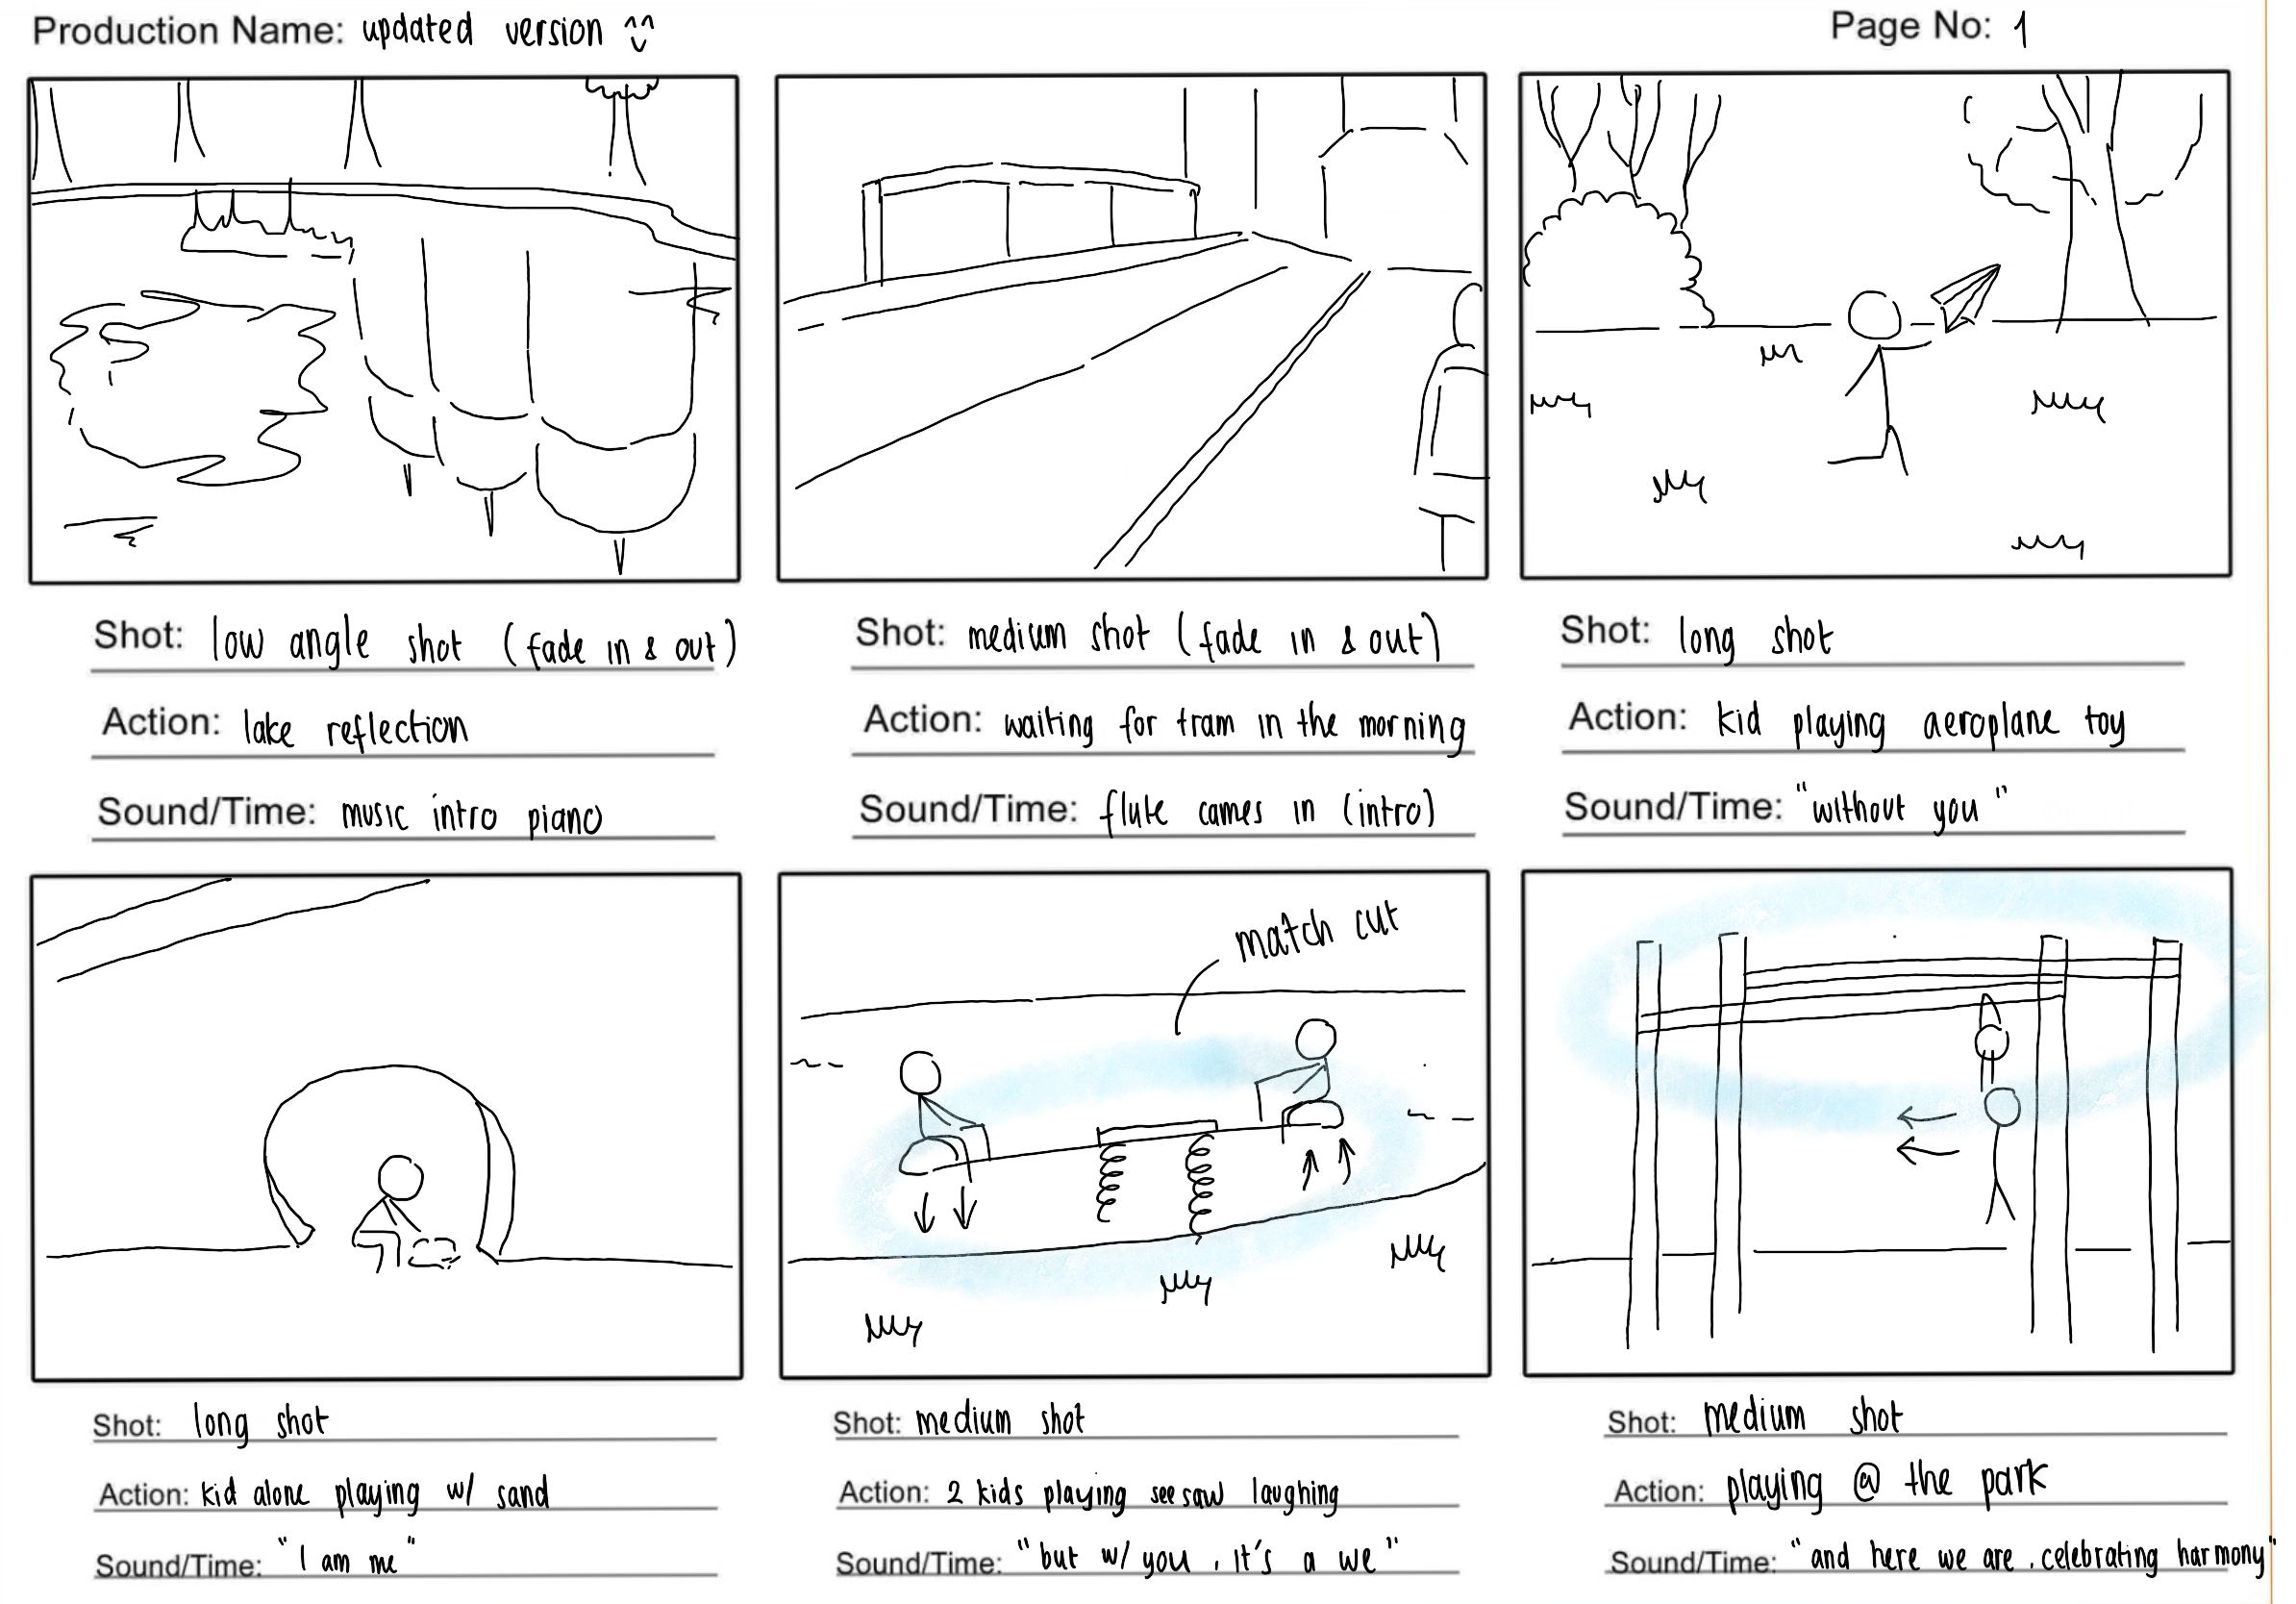 Production Name: updated version ^^
Page No: 1
Shot: low angle shot (fade in & out)
Action: lake reflection
Sound/Time: music intro piano
Shot: medium shot (fade in & out)
Action: waiting for tram in the morning
Sound/Time: flute cames in (intro)
Shot: long shot
Action: kid playing aeroplane toy
Sound/Time: "without you"
Shot: long shot
Action: kid alone playing w/ sand
Sound/Time: "I am me"
match cut
Shot: medium shot
Action: 2 kids playing see saw laughing
Sound/Time: "but w/ you, it's a we"
Shot: medium shot
Action: playing @ the park
Sound/Time: "and here we are, celebrating harmony"